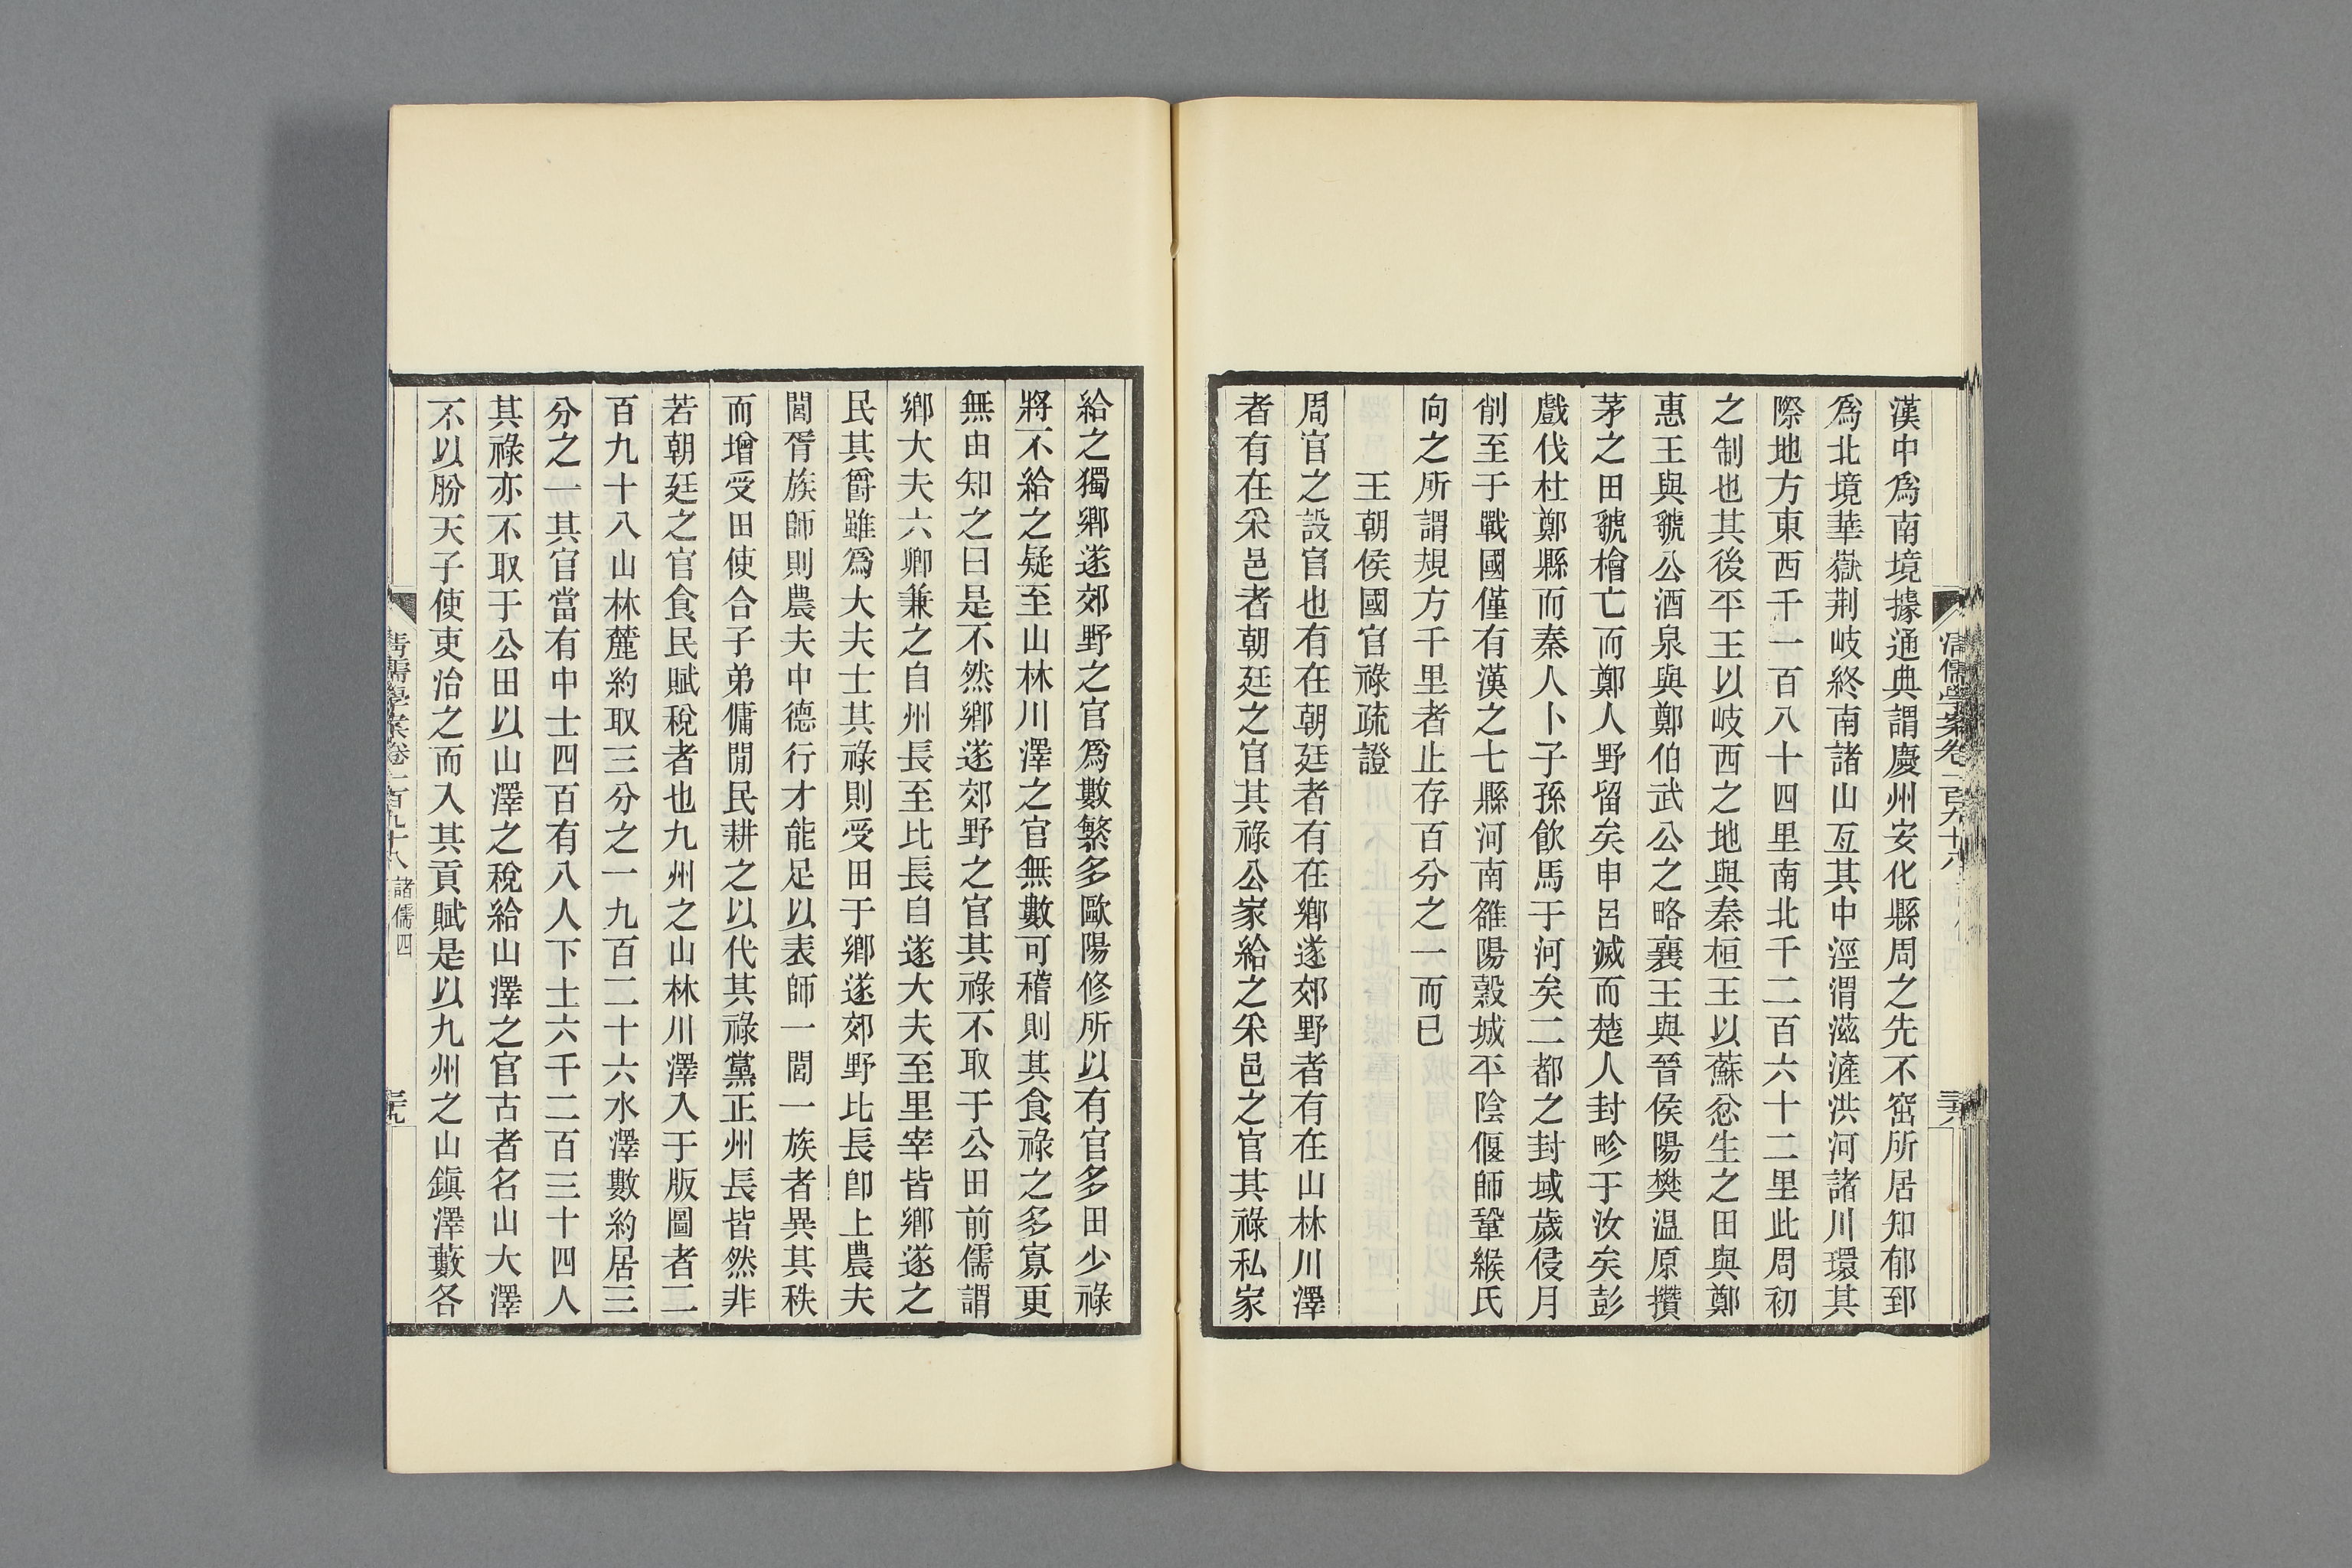 漢中爲南境據通典謂慶州安化縣周之先不窋所居知郁郅
爲北境華嶽荆岐終南諸山亙其中涇渭滋滻洪河諸川環其
際地方東西千一百八十四里南北千二百六十二里此周初
之制也其後平王以岐西之地與秦桓王以蘇忿生之田與鄭
惠王與虢公酒泉與鄭伯武公之略襄王與晉侯陽樊溫原攢
茅之田虢檜亡而鄭人野留矣申呂滅而楚人封畛于汝矣彭
戲伐杜鄭縣而秦人卜子孫飲馬于河矣二都之封域歲侵月
削至于戰國僅有漢之七縣河南雒陽穀城平陰偃師鞏緱氏
向之所謂規方千里者止存百分之一而已
王朝侯國官祿疏證
周官之設官也有在朝廷者有在鄉遂郊野者有在山林川澤
者有在采邑者朝廷之官其祿公家給之采邑之官其祿私家
清儒學案卷一百九十八
給之獨鄉遂郊野之官爲數繁多歐陽修所以有官多田少祿
將不給之疑至山林川澤之官無數可稽則其食祿之多寡更
無由知之曰是不然鄉遂郊野之官其祿不取于公田前儒謂
鄉大夫六卿兼之自州長至比長自遂大夫至里宰皆鄉遂之
民其爵雖爲大夫士其祿則受田于鄉遂郊野比長卽上農夫
閭胥族師則農夫中德行才能足以表師一閭一族者異其秩
而增受田使合子弟傭閒民耕之以代其祿黨正州長皆然非
若朝廷之官食民賦稅者也九州之山林川澤入于版圖者二
百九十八山林麓約取三分之一九百二十六水澤數約居三
分之一其官當有中士四百有八人下士六千二百三十四人
其祿亦不取于公田以山澤之稅給山澤之官古者名山大澤
不以朌天子使吏治之而入其貢賦是以九州之山鎭澤藪各
清儒學案卷一百九十八 諸儒四 三十九